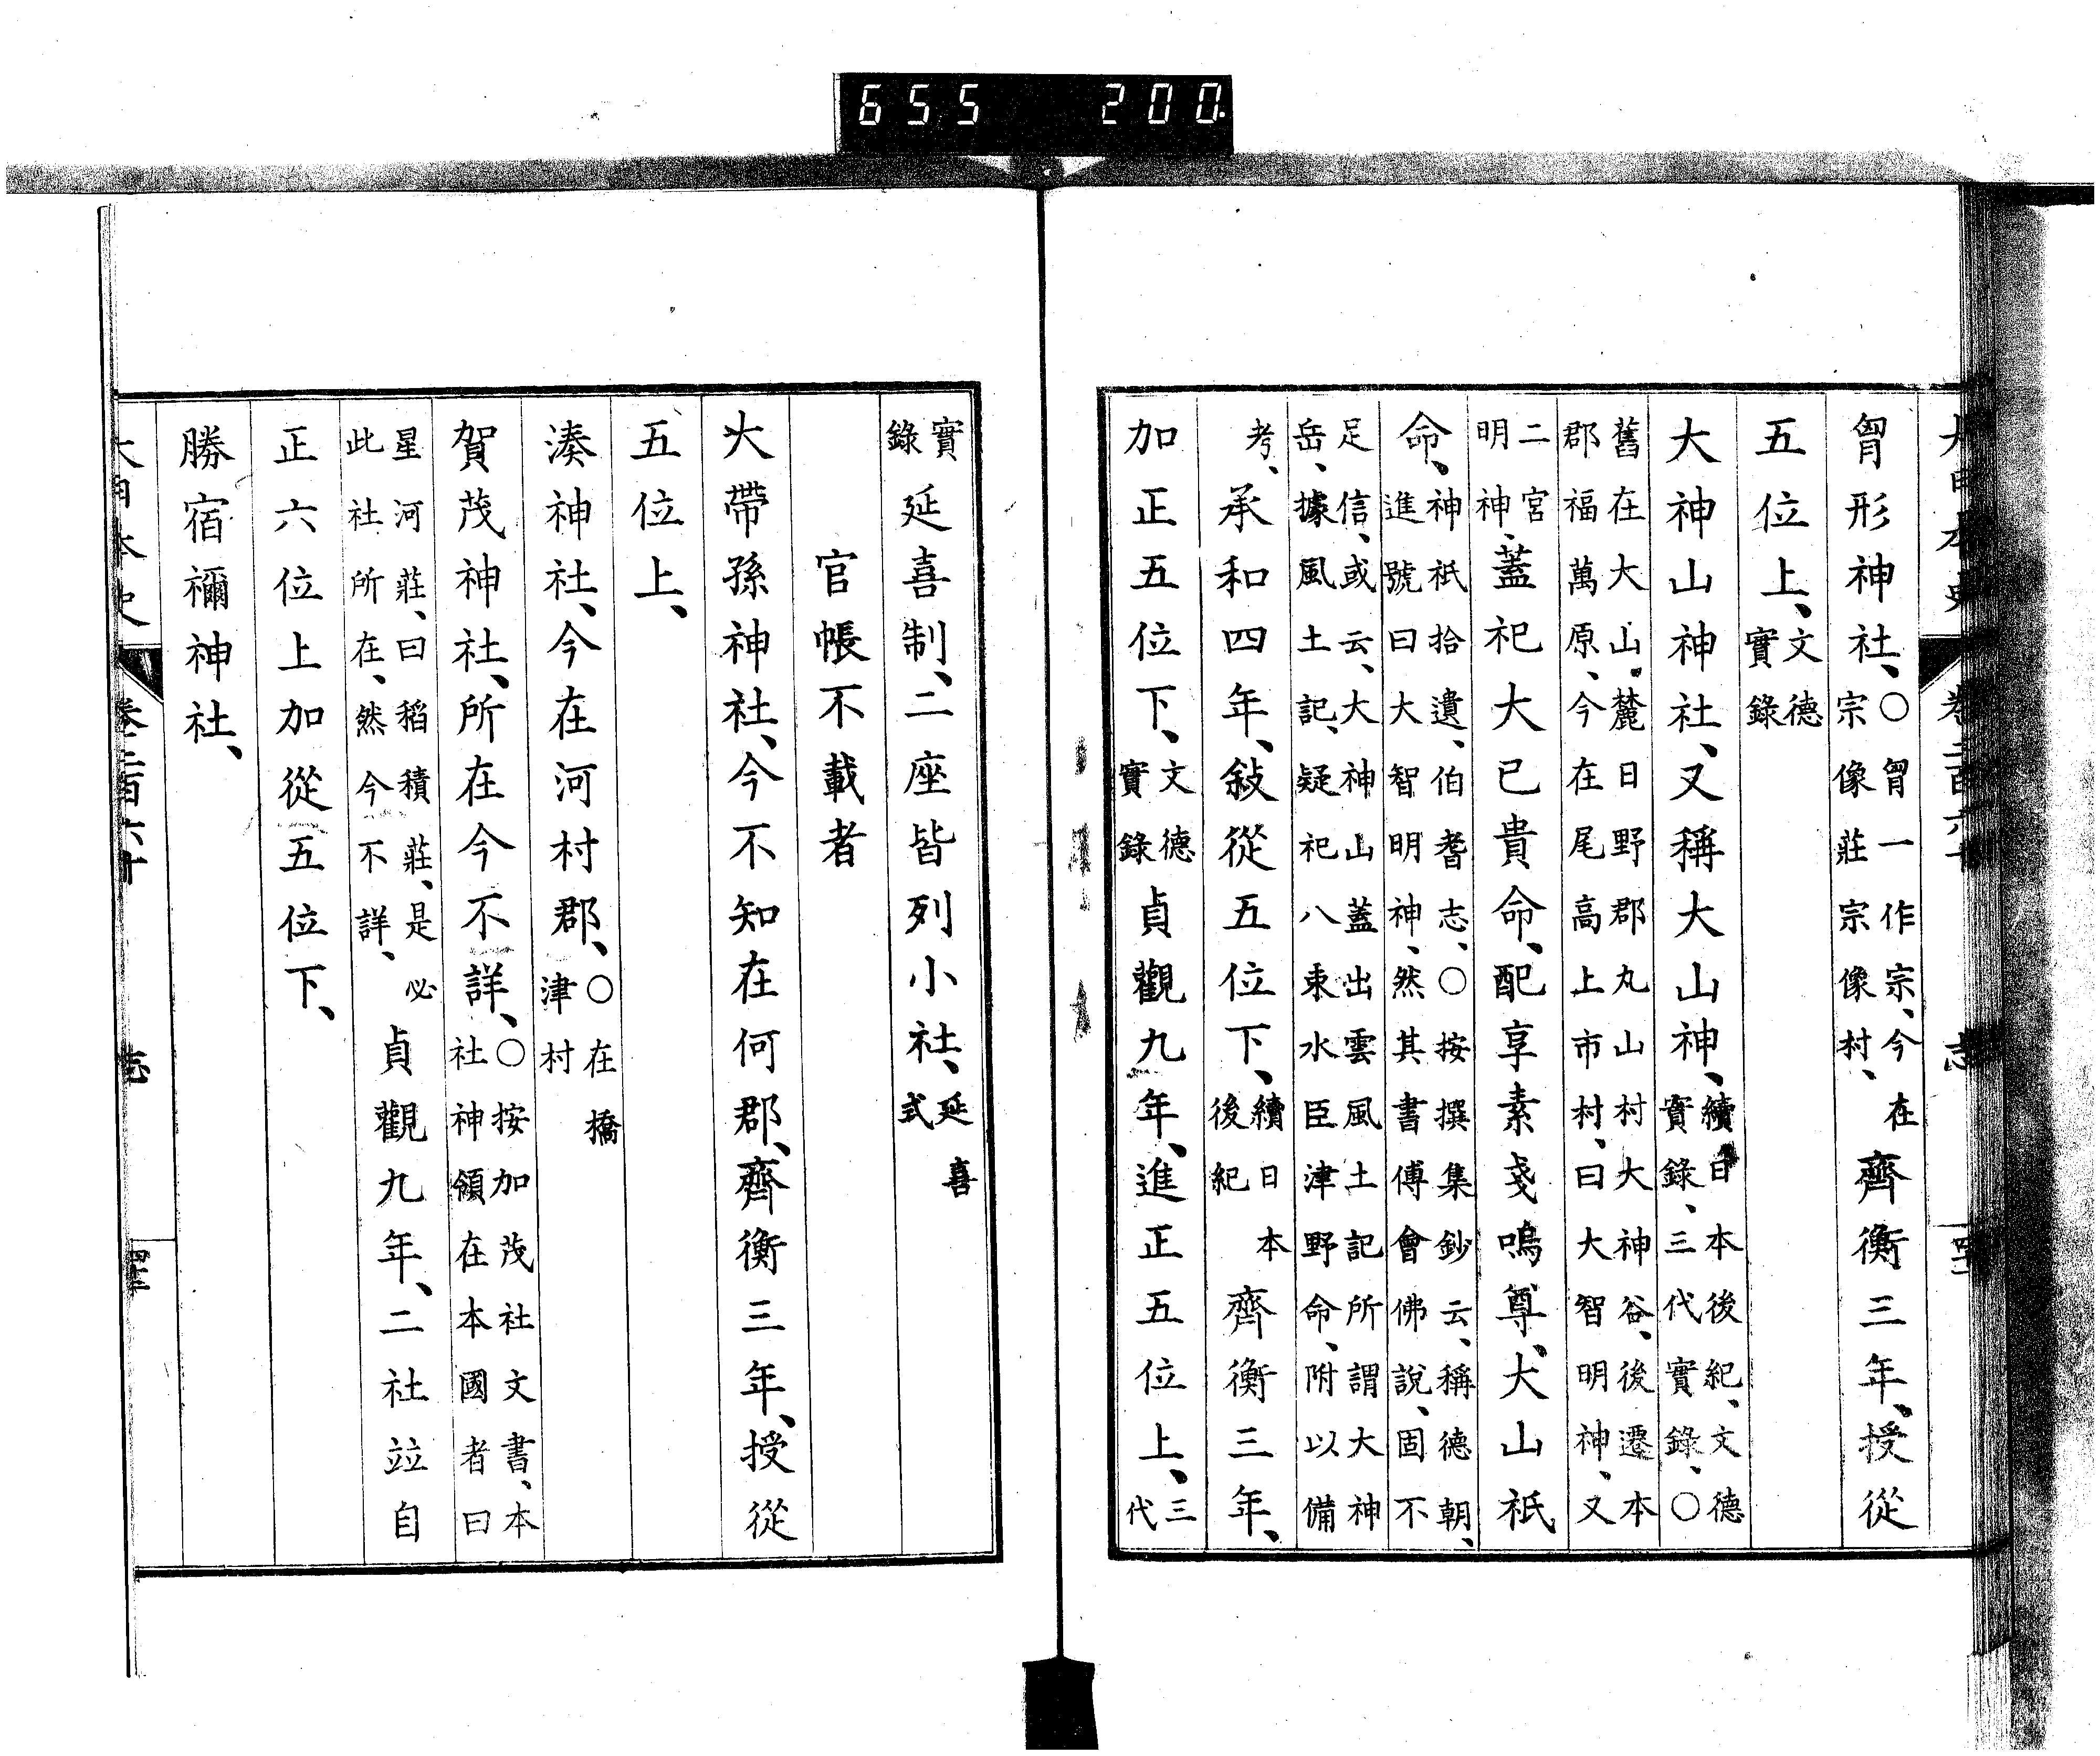 大日本史 卷二百六十 志
胷形神社、〇胷一作宗、今在宗像莊宗像村、齊衡三年、授從
五位上、文德實錄
大神山神社、又稱大山神、續日本後紀、文德實錄、三代實錄、〇
舊在大山麓日野郡丸山村大神谷、後遷本郡福萬原、今在尾高上市村、曰大智明神、又
二宮明神、蓋祀大已貴命、配享素戔嗚尊、大山祇
命、神祇拾遺、伯耆志、〇按撰集鈔云、稱德朝、進號曰大智明神、然其書傅會佛說、固不
足信、或云、大神山蓋出雲風土記所謂大神岳、據風土記、疑祀八束水臣津野命、附以備
考、承和四年、敍從五位下、續日本後紀齊衡三年、
加正五位下、文德實錄貞觀九年、進正五位上、三代
實錄延喜制、二座皆列小社、延喜式
官帳不載者
大帶孫神社、今不知在何郡、齊衡三年、授從
五位上、
湊神社、今在河村郡、〇在橋津村
賀茂神社、所在今不詳、〇按加茂社文書、本社神領在本國者曰
星河莊、曰稻積莊、是必此社所在、然今不詳、貞觀九年、二社竝自
正六位上加從五位下、
勝宿禰神社、
大日本史 卷二百六十 志
655 200.